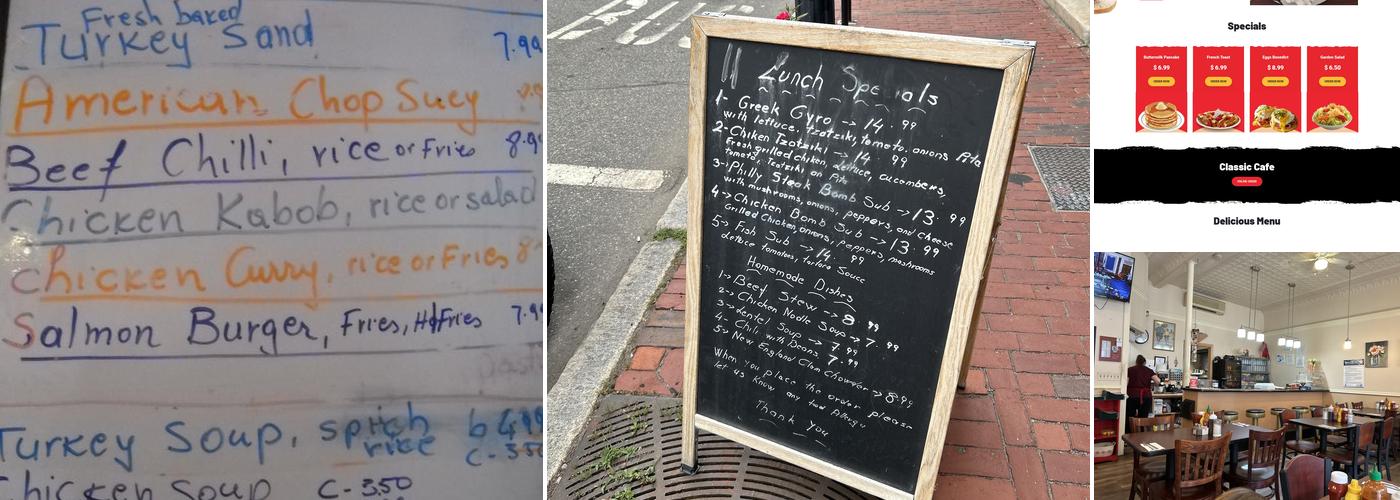 Fresh baked
Turkey Sand 7.99
American Chop Suey
Beef Chilli, rice or Fries 8.9
Chicken Kabob, rice or salad
Chicken Curry, rice or Fries 8
Salmon Burger, Fries, H Fries 7.99
Turkey Soup, spich b 4.99
rice C- 3.50
Chicken Soup C- 3.50
Lunch Specials
1- Greek Gyro -> 14.99
with lettuce, tzatziki, tomato, onions Pita
2- Chiken Tzatziki -> 14.99
Fresh grilled chiken, lettuce, cucombers,
tomato, Tzatziki on Pita
3-> Philly Steak Bomb Sub -> 13.99
with mushrooms, onions, peppers, and cheese
4-> Chicken Bomb Sub -> 13.99
Grilled Chicken, onions, peppers, mushrooms
5-> Fish Sub -> 14.99
lettuce tomatoes, tartara Sauce
Homemade Dishes
1-> Beef Stew -> 8.99
2-> Chicken Noodle Soup -> 7.99
3-> Lentel Soup -> 7.99
4- Chili with Beans 7.99
5> New England Clam Chowder -> 8.99
When you place the order please
let us know any food Allergy
Thank you
Specials
Buttermilk Pancake
$ 6.99
ORDER NOW
French Toast
$ 6.99
ORDER NOW
Eggs Benedict
$ 8.99
ORDER NOW
Garden Salad
$ 6.50
ORDER NOW
Classic Cafe
ONLINE ORDER
Delicious Menu